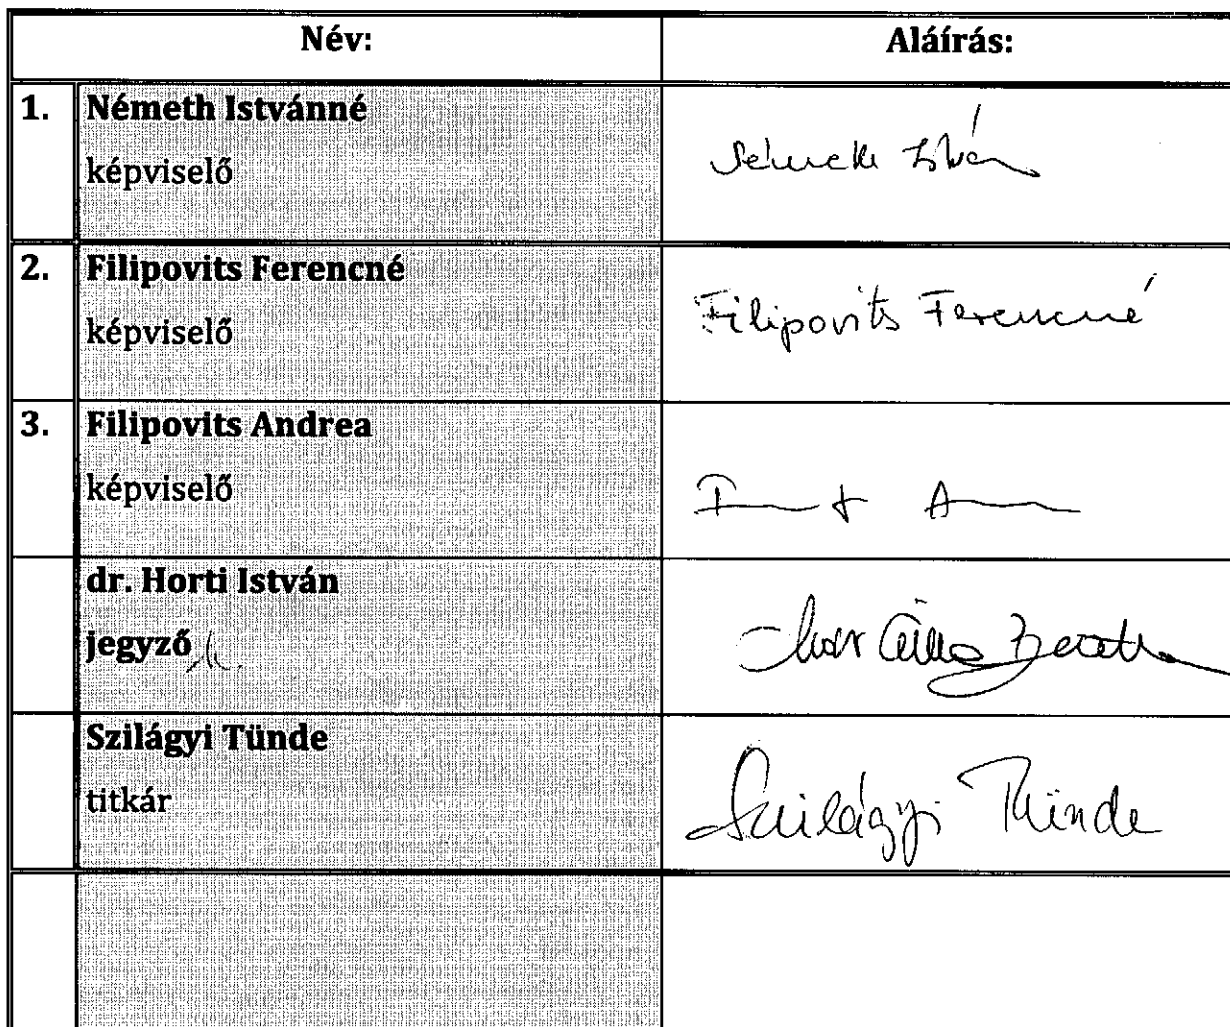 Név: Aláírás:
1. Németh Istvánné
képviselő
2. Filipovits Ferencné
képviselő
Filipovits Ferencné
3. Filipovits Andrea
képviselő
dr. Horti István
jegyző
Szilágyi Tünde
titkár
Szilágyi Tünde